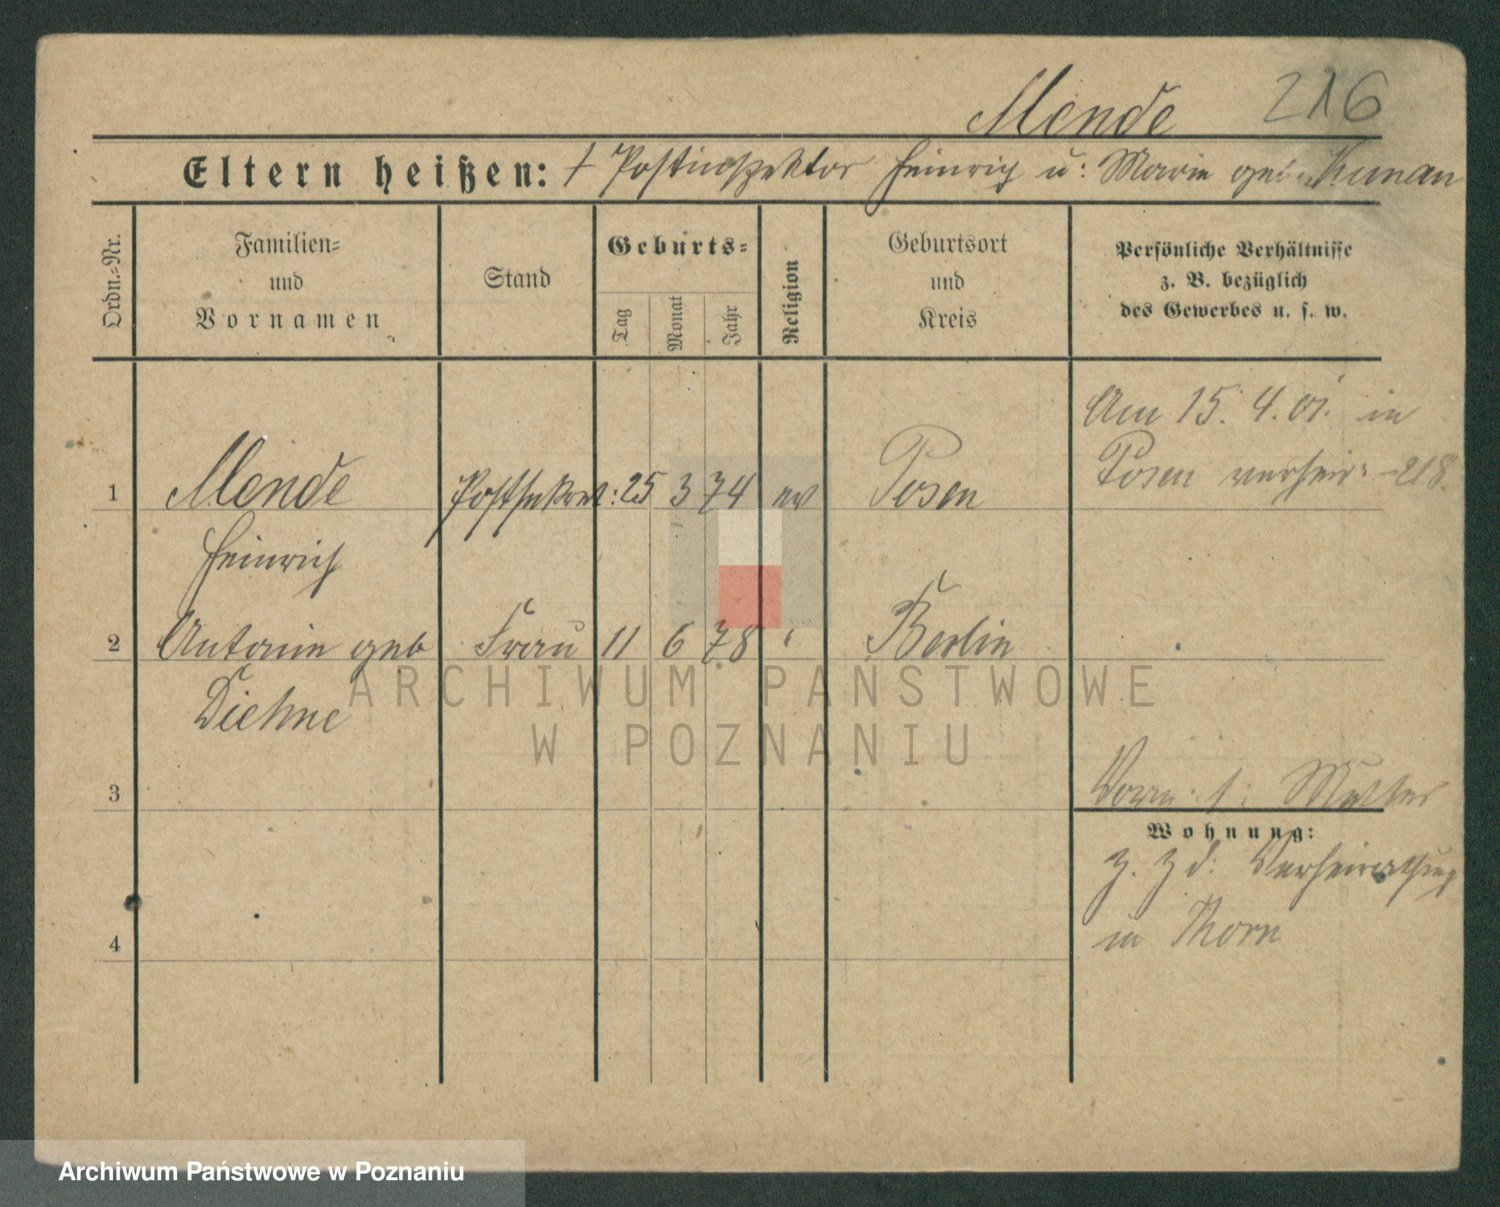 Mende 216
Eltern heißen: † Postinspektor Heinrich u: Marie geb. Kunan
Ordn.-Nr.
Familien-
und
Vornamen
Stand
Geburts-
Tag
Monat
Jahr
Religion
Geburtsort
und
Kreis
Persönliche Verhältnisse
z. B. bezüglich
des Gewerbes u. s. w.
Am 15. 4. 01. in
Posen verheir: -218.
1 Mende Postsekret: 25 3 74 ev Posen
Heinrich
2 Antonie geb Frau 11 6 78 " Berlin
Diehne
3
Mutter
Wohnung:
z. Z d. Verheirathung
in Thorn
4
ARCHIWUM PAŃSTWOWE
W POZNANIU
Archiwum Państwowe w Poznaniu